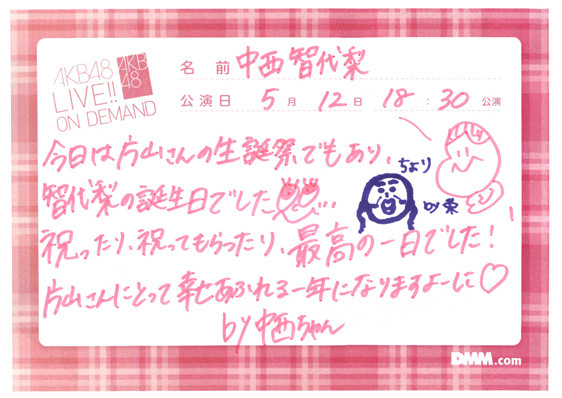 AKB48
LIVE!!
ON DEMAND
AKB
48
名 前 中西智代梨
公演日 5月 12日 18:30 公演
今日は片山さんの生誕祭でもあり、
智代梨の誕生日でした…
ちょり
祝ったり、祝ってもらったり、最高の一日でした!
片山さんにとって幸せあふれる一年になりますよーに♡
by 中西ちゃん
DMM.com